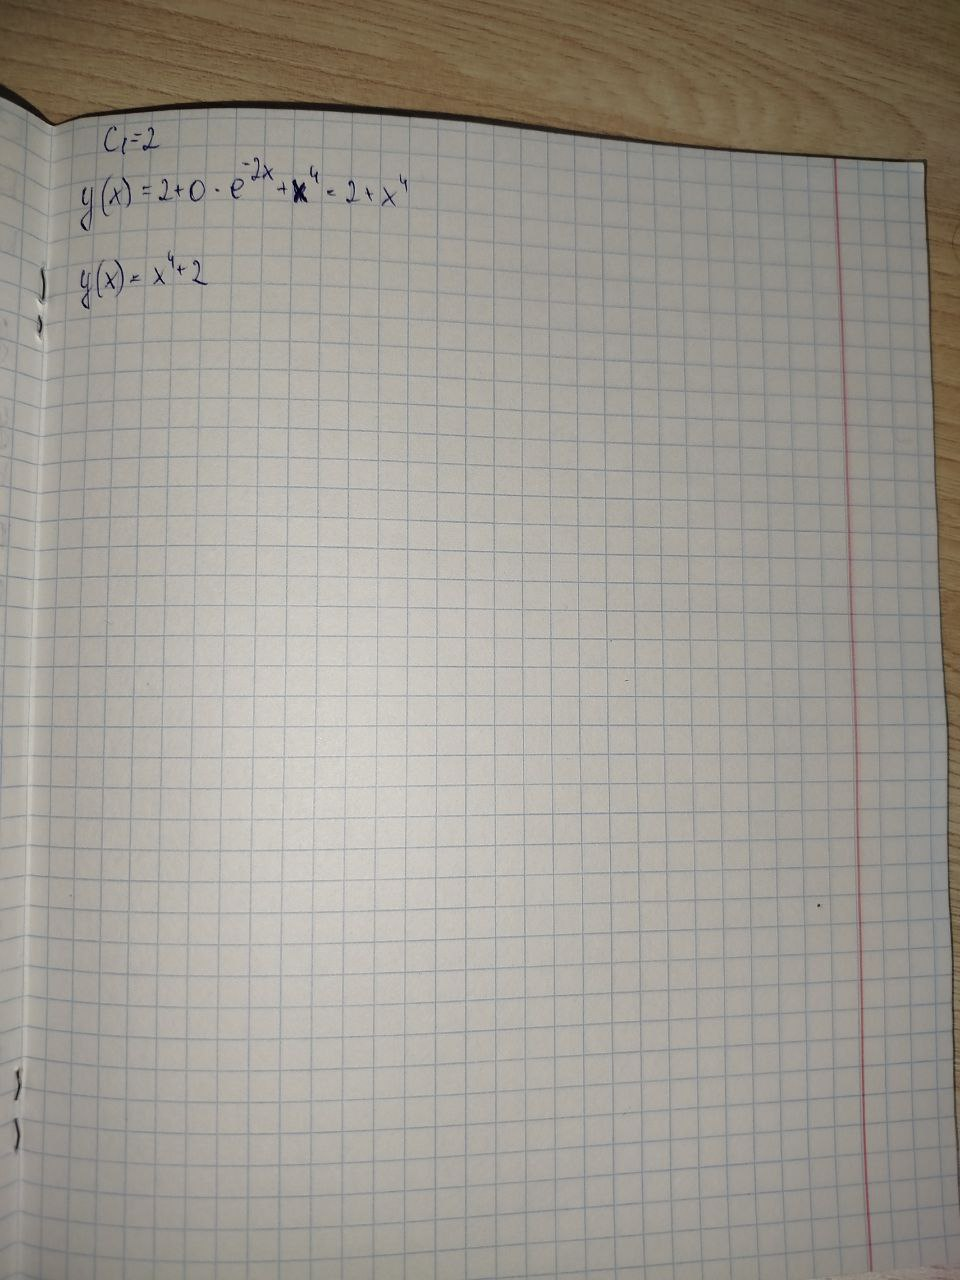 C₁=2
y(x) = 2+0·e⁻²ˣ+x⁴ = 2+x⁴
y(x) = x⁴+2